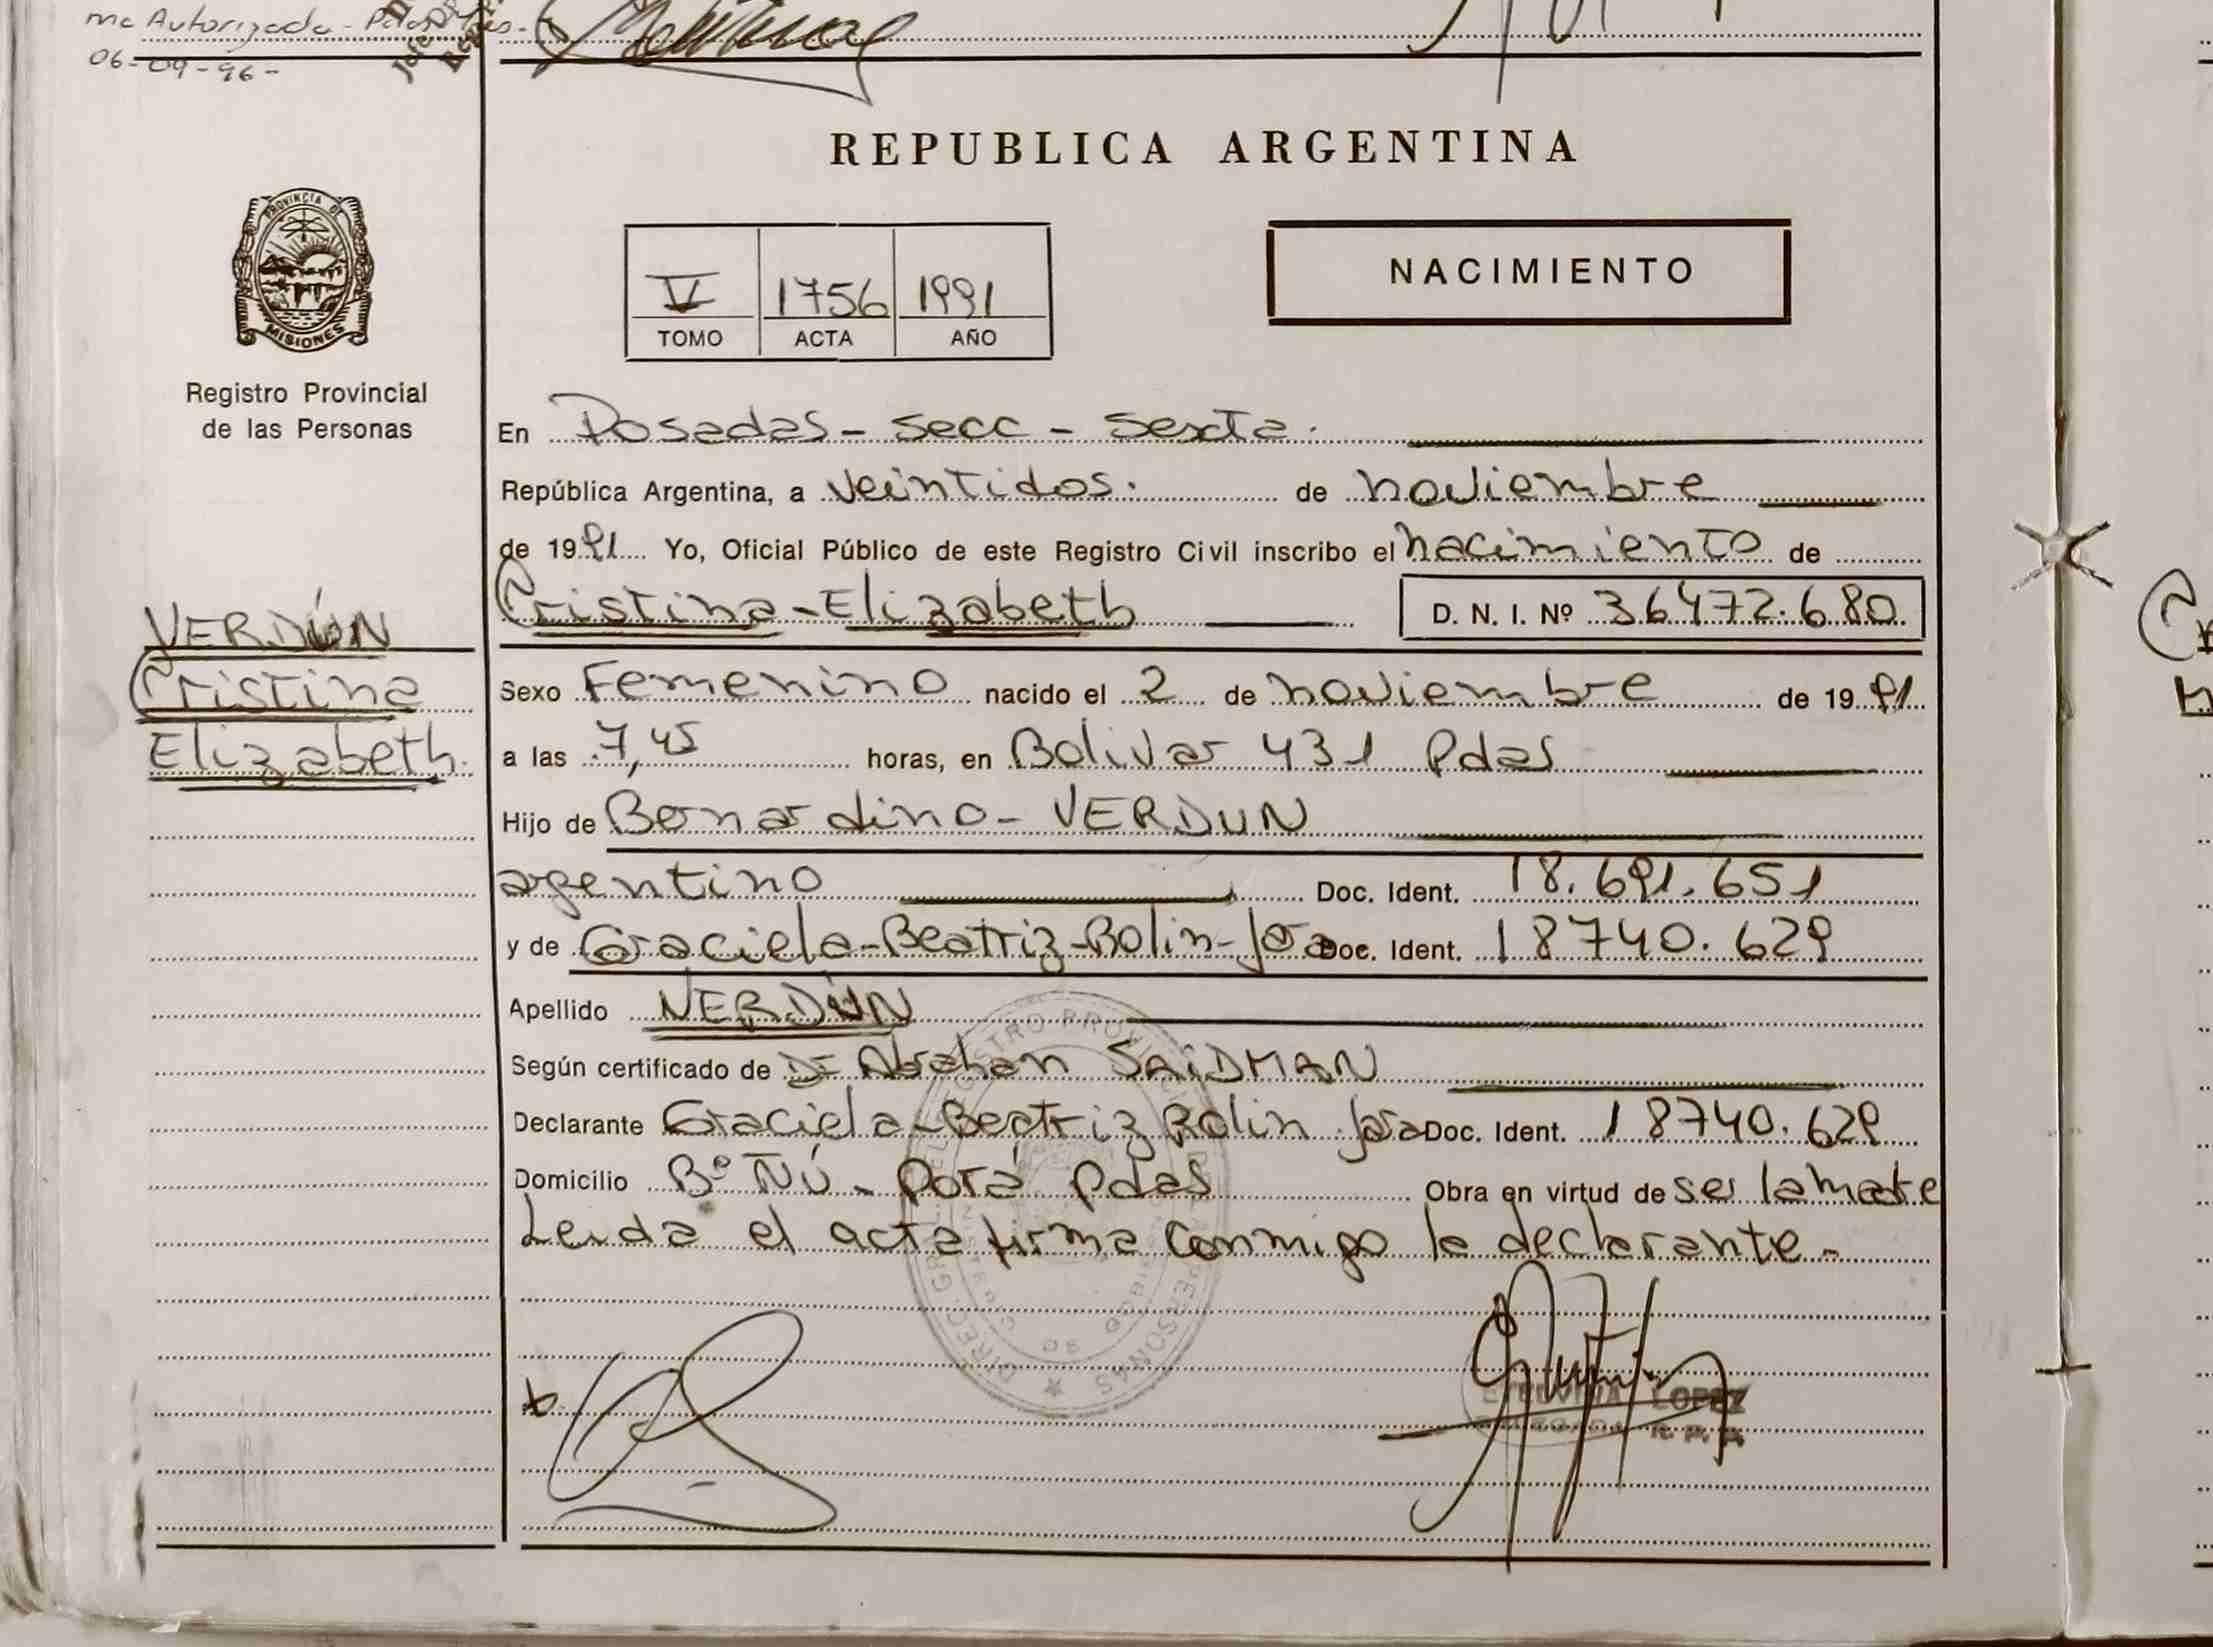 me Autorizada - Pdas Mis.-
06-09-96-
REPUBLICA ARGENTINA
PROVINCIA DE
MISIONES
Registro Provincial
de las Personas
V 1756 1991
TOMO ACTA AÑO
NACIMIENTO
En Posadas - secc - sexta.
República Argentina, a veintidos. de noviembre
de 1991 Yo, Oficial Público de este Registro Civil inscribo el nacimiento de
Cristina-Elizabeth D. N. I. Nº 36472.680
VERDÚN
Cristina
Elizabeth.
Sexo Femenino nacido el 2 de noviembre de 1991
a las 7,45 horas, en Bolivar 431 Pdas
Hijo de Bernardino - VERDUN
argentino Doc. Ident. 18.691.651
y de Graciela-Beatriz-Rolin-Jara Doc. Ident. 18740.629
Apellido VERDÚN
Según certificado de Dr Abrahan SAIDMAN
Declarante Graciela-Beatriz Rolin Jara Doc. Ident. 18740.629
Domicilio Bº Ñú - Porá Pdas Obra en virtud de ser la madre
Leida el acta firma conmigo la declarante.-
ETELVINA LOPEZ